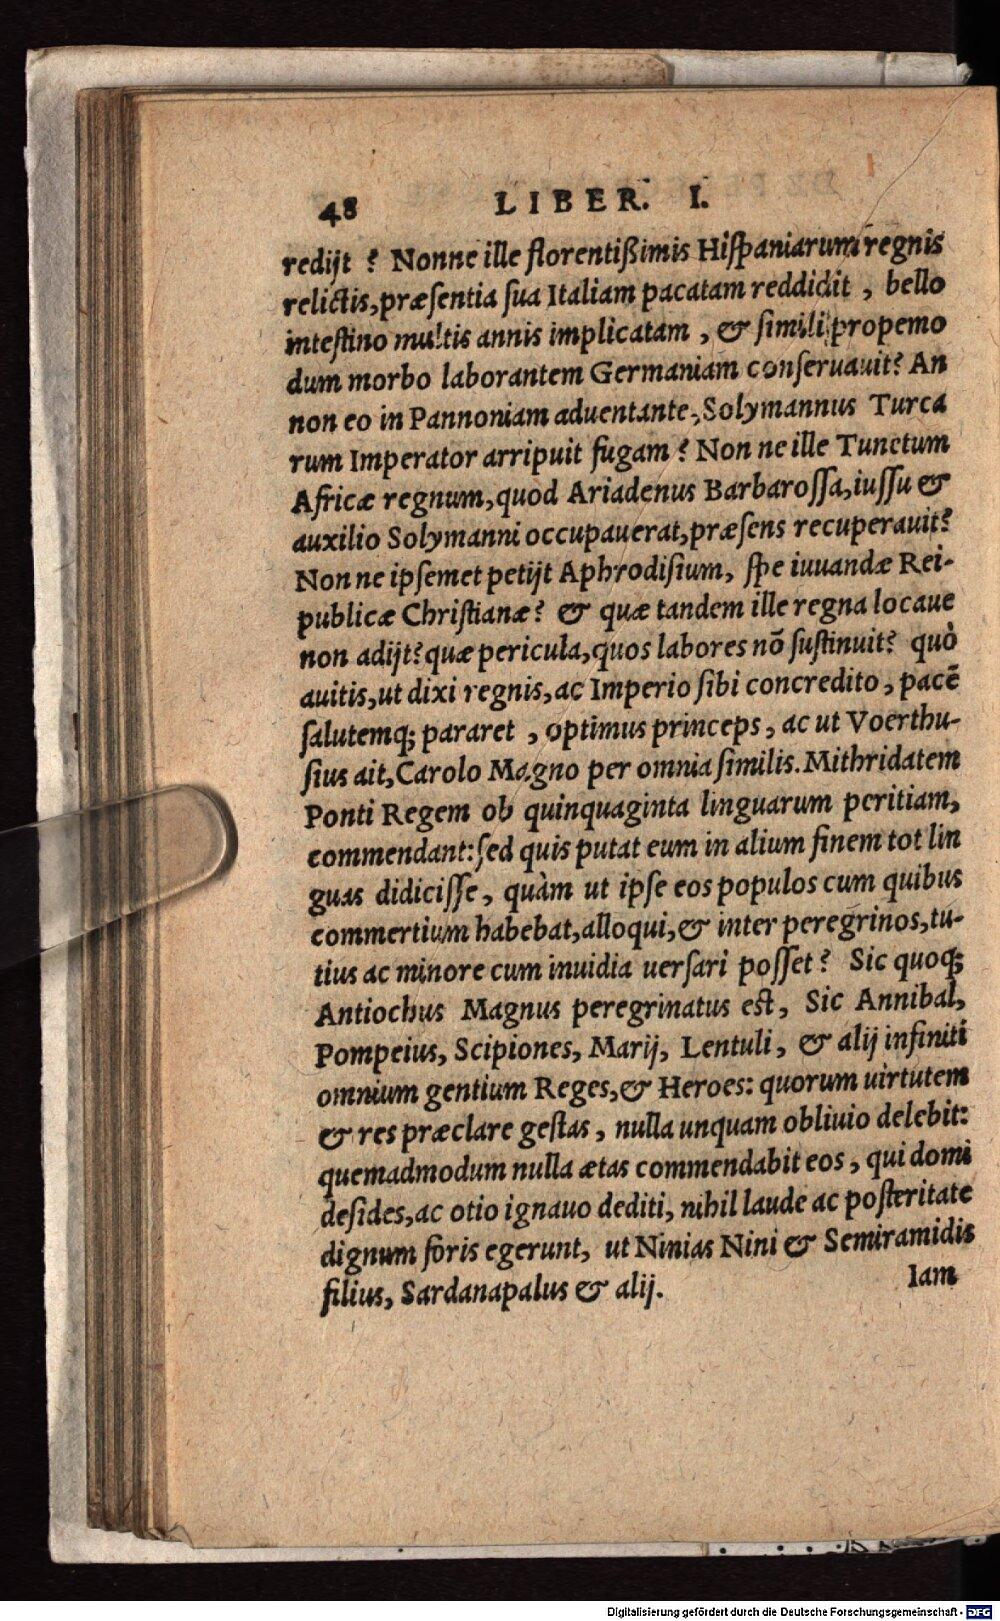 48 LIBER. I.
redijt ? Nonne ille florentißimis Hiſpaniarum regnis
relictis, præſentia ſua Italiam pacatam reddidit , bello
inteſtino multis annis implicatam , & ſimili propemo
dum morbo laborantem Germaniam conſeruauit? An
non eo in Pannoniam aduentante, Solymannus Turca
rum Imperator arripuit fugam ? Non ne ille Tunetum
Africæ regnum, quod Ariadenus Barbaroſſa, iuſſu &
auxilio Solymanni occupauerat, præſens recuperauit?
Non ne ipſemet petijt Aphrodiſium, ſpe iuuandæ Rei-
publicæ Chriſtianæ? & quæ tandem ille regna locaue
non adijt? quæ pericula, quos labores nō ſuſtinuit? quò
auitis, ut dixi regnis, ac Imperio ſibi concredito, pacē
ſalutemq; pararet , optimus princeps, ac ut Voerthu-
ſius ait, Carolo Magno per omnia ſimilis. Mithridatem
Ponti Regem ob quinquaginta linguarum peritiam,
commendant: ſed quis putat eum in alium finem tot lin
guas didiciſſe, quàm ut ipſe eos populos cum quibus
commertium habebat, alloqui, & inter peregrinos, tu-
tius ac minore cum inuidia uerſari poſſet? Sic quoq;
Antiochus Magnus peregrinatus eſt, Sic Annibal,
Pompeius, Scipiones, Marij, Lentuli, & alij infiniti
omnium gentium Reges, & Heroes: quorum uirtutem
& res præclare geſtas, nulla unquam obliuio delebit:
quemadmodum nulla ætas commendabit eos, qui domi
deſides, ac otio ignauo dediti, nihil laude ac poſteritate
dignum foris egerunt, ut Ninias Nini & Semiramidis
filius, Sardanapalus & alij.
Iam
Digitalisierung gefördert durch die Deutsche Forschungsgemeinschaft - DFG